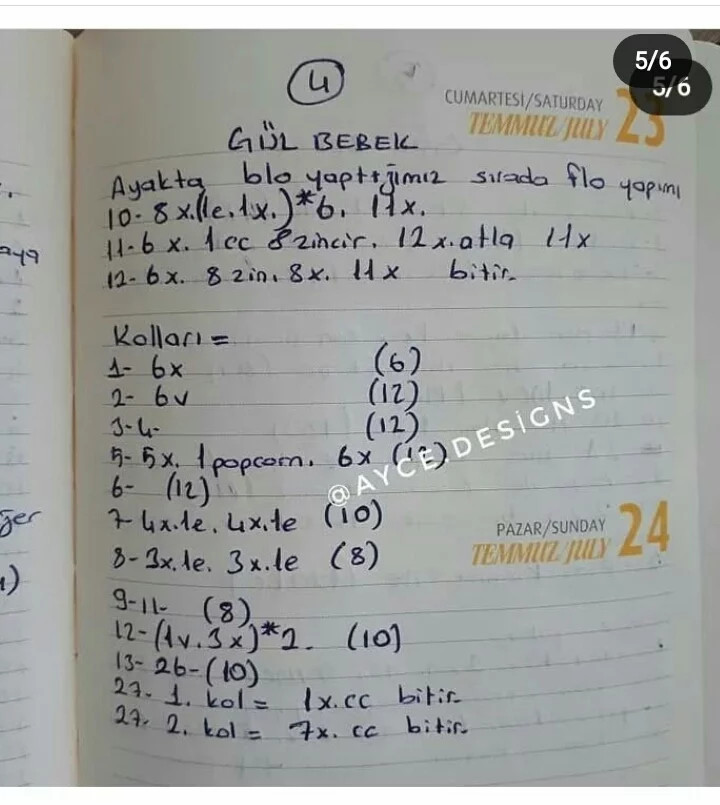 5/6
5/6
4
CUMARTESİ/SATURDAY 23
TEMMUZ/JULY
GÜL BEBEK
Ayakta blo yaptığımız sırada flo yapımı
10- 8x.(le.1x.)*6. 11x.
11-6 x. 1cc 8zincir. 12x.atla 11x
12-6x. 8 zin. 8x. 11x bitir.
Kolları =
1- 6x (6)
2- 6v (12)
3-4- (12)
5-5x. 1popcorn. 6x (12)
@AYCE.DESİGNS
6- (12)
7-4x.1e. 4x.1e (10)
PAZAR/SUNDAY 24
TEMMUZ/JULY
8-3x.1e. 3x.1e (8)
9-11- (8)
12-(1v.3x)*2. (10)
13-26-(10)
27. 1. kol = 1x.cc bitir.
27. 2. kol = 7x. cc bitir.